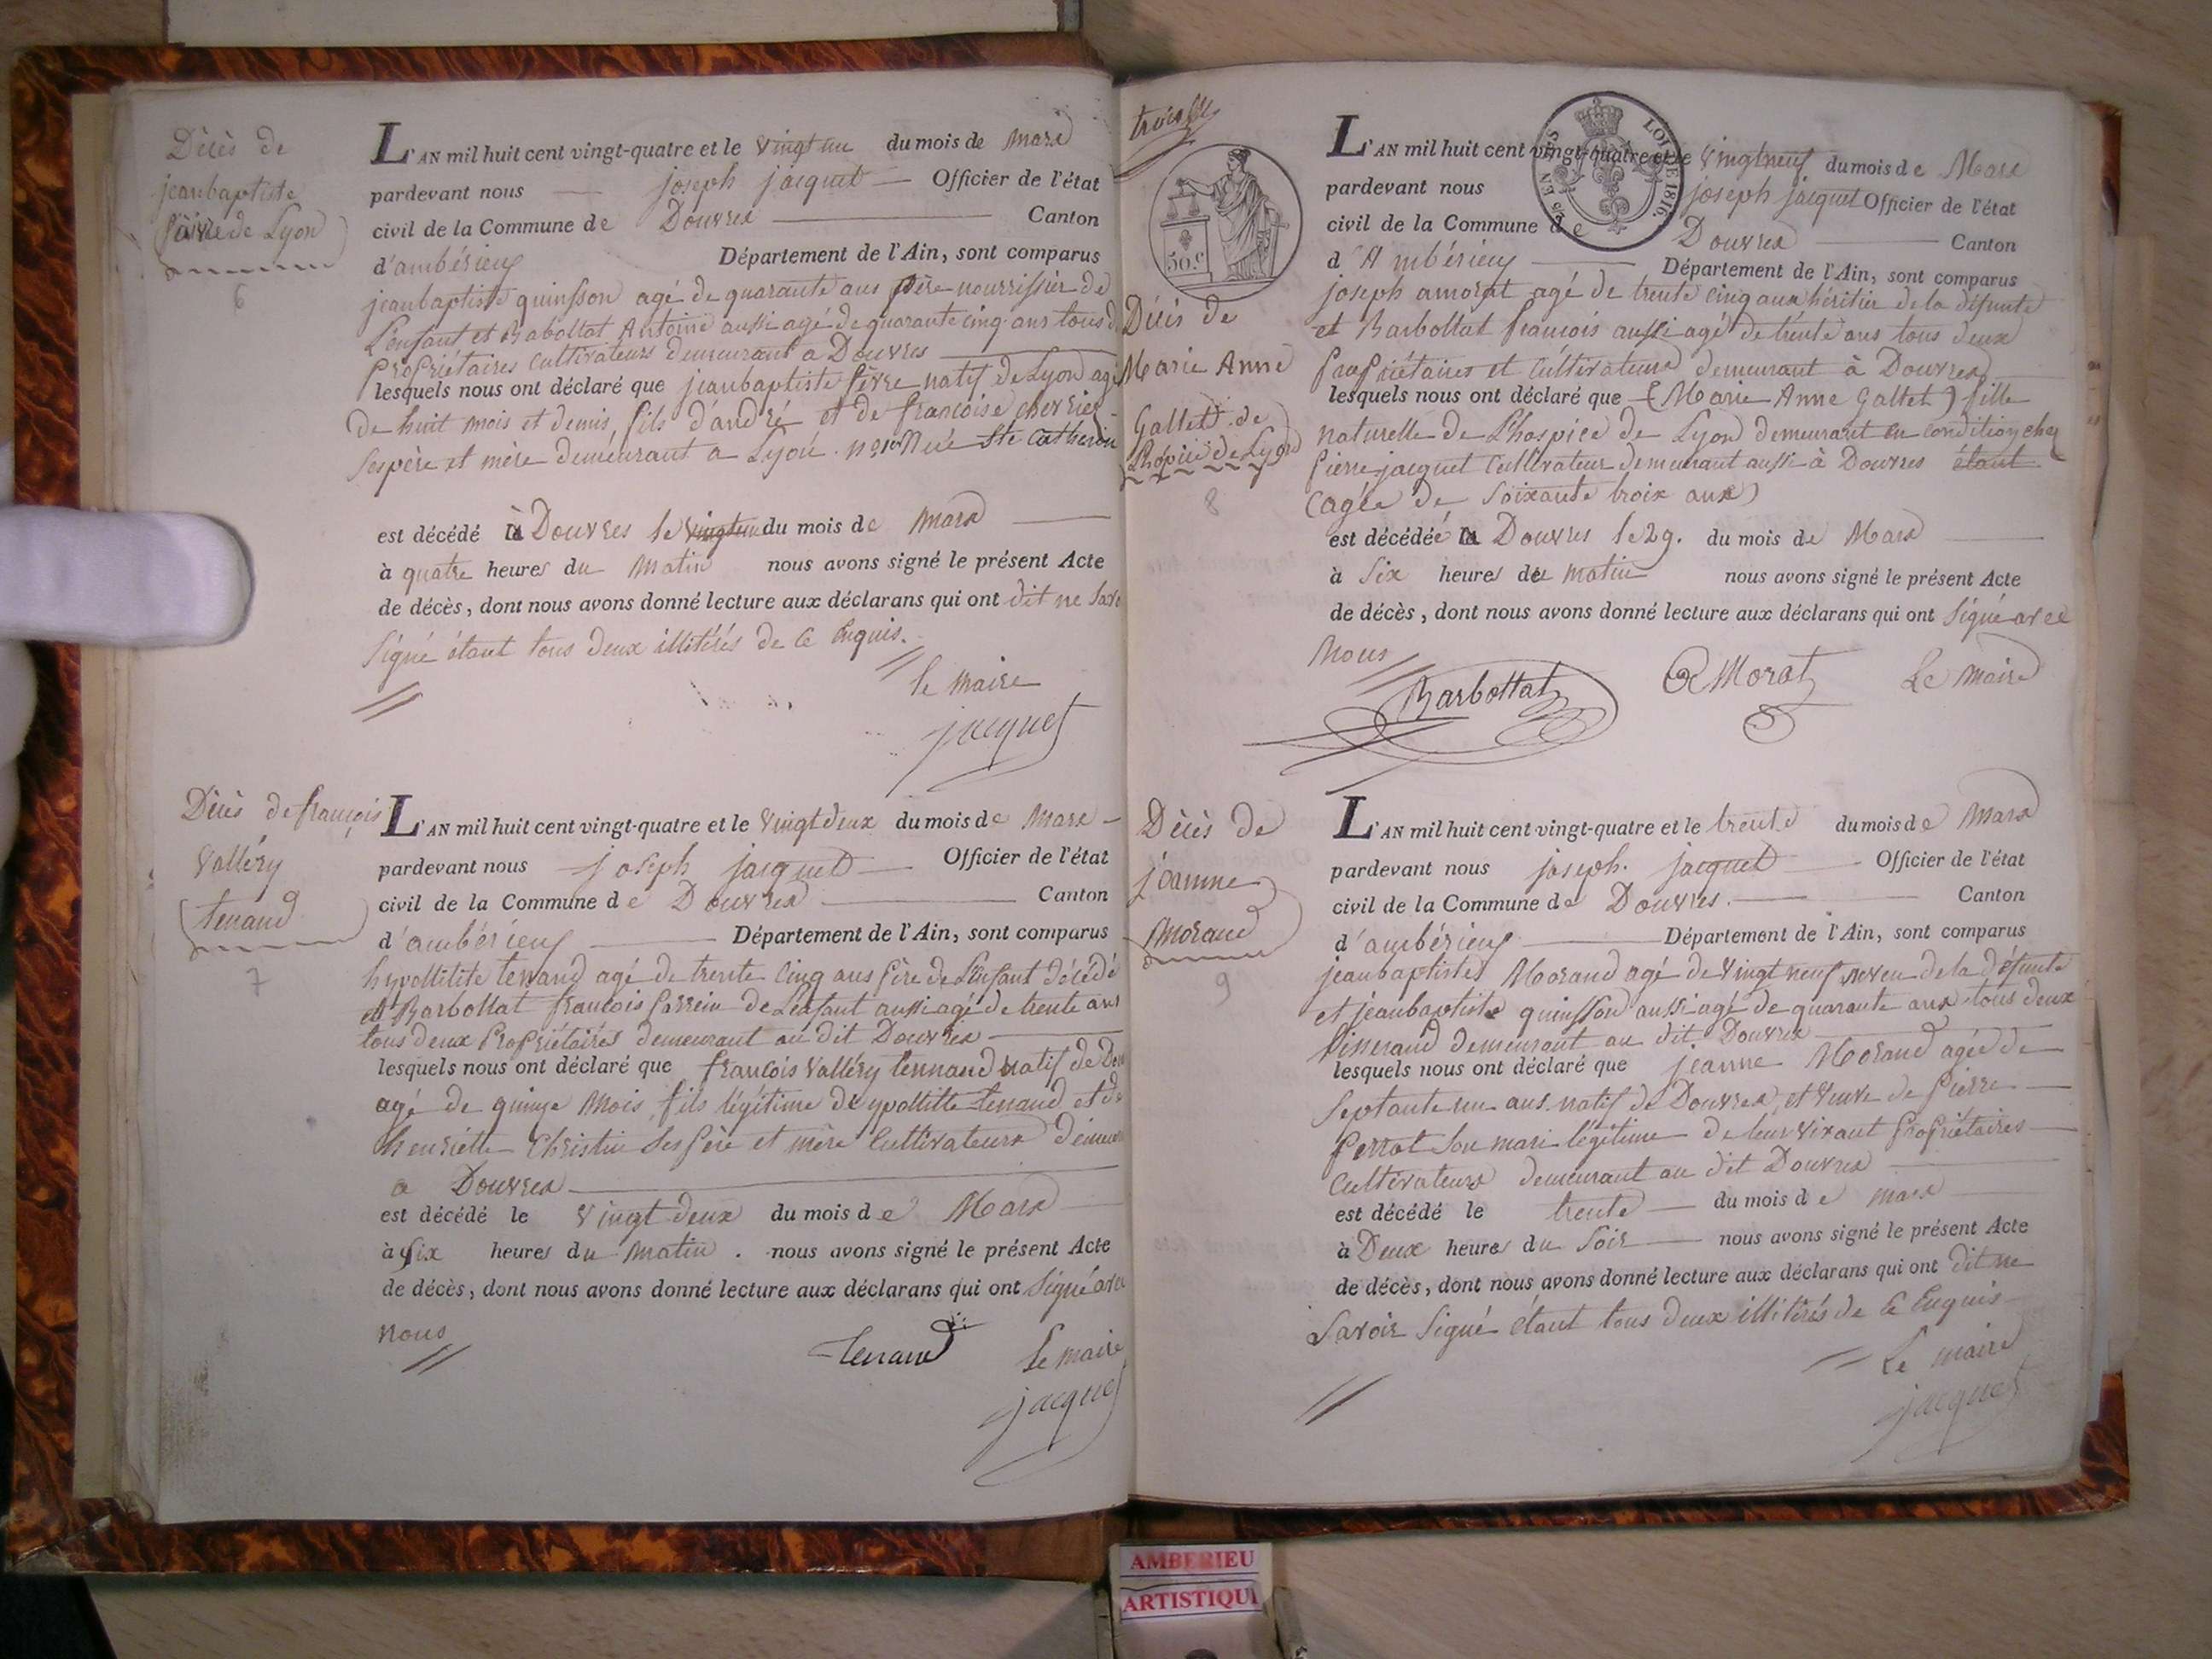 Décès de
jeanbaptiste
fèvre de Lyon
6
L'AN mil huit cent vingt-quatre et le vingt un du mois de Mars
pardevant nous joseph jacquet Officier de l'état
civil de la Commune de Douvres Canton
d'ambérieux Département de l'Ain, sont comparus
jeanbaptiste quinsson agé de quarante ans père nourrissier de
L'enfant et Rabottat Antoine aussi agé de quarante cinq ans tous d
Propriétaires cultivateurs demeurant a Douvres
lesquels nous ont déclaré que jeanbaptiste fèvre natif de Lyon agé
de huit mois et demis, fils d'andré et de francoise chevrier
ses père et mère demeurant a Lyon. Rue Ste Catherine
est décédé à Douvres le vingtun du mois de Mars
à quatre heures du Matin nous avons signé le présent Acte
de décès, dont nous avons donné lecture aux déclarans qui ont dit ne savo
signé étant tous deux illitérés de ce enquis.
le maire
jacquet
Décès de françois
Valléry
tenand
7
L'AN mil huit cent vingt-quatre et le vingt deux du mois de Mars
pardevant nous joseph jacquet Officier de l'état
civil de la Commune de Douvres Canton
d'ambérieux Département de l'Ain, sont comparus
hypollitite tenand agé de trente cinq ans père de L'enfant décédé
et Barbottat francois parrein de L'enfant aussi agé de trente ans
tous deux Propriétaires demeurant au dit Douvres
lesquels nous ont déclaré que francois Valléry tennand natif de Dou
agé de quinze Mois, fils légitime de ypollitte tenand et de
henriette Christin ses père et mère Cultivateurs demeur
a Douvres
est décédé le vingt deux du mois de Mars
à six heures du matin. nous avons signé le présent Acte
de décès, dont nous avons donné lecture aux déclarans qui ont signé avec
nous
tenand
le maire
jacquet
50.c
EN SUS
LOI DE 1816.
Décès de
Marie Anne
Gallet de
L'hospice de Lyon
8
L'AN mil huit cent vingt-quatre et le vingtneuf du mois de Mars
pardevant nous joseph jacquet Officier de l'état
civil de la Commune de Douvres Canton
d'Ambérieux Département de l'Ain, sont comparus
joseph amorat agé de trente cinq ans héritier de la défunte
et Barbottat francois aussi agé de trente ans tous deux
propriétaires et Cultivateurs demeurant à Douvres
lesquels nous ont déclaré que (Marie Anne Gallet) fille
naturelle de L'hospice de Lyon demeurant en condition chez
pierre jacquet Cultivateur demeurant aussi à Douvres étant
(agée de soixante troix ans)
est décédée à Douvres le 29. du mois de Mars
à six heures du matin nous avons signé le présent Acte
de décès, dont nous avons donné lecture aux déclarans qui ont signé avec
nous
Barbottat
Morat
Le Maire
Décès de
jeanne
Morand
9
L'AN mil huit cent vingt-quatre et le trente du mois de Mars
pardevant nous joseph. jacquet Officier de l'état
civil de la Commune de Douvres. Canton
d'ambérieux Département de l'Ain, sont comparus
jeanbaptiste Morand agé de vingt neuf neveu de la défunte
et jeanbaptiste quinsson aussi agé de quarante ans tous deux
tisserand demeurant au dit Douvres
lesquels nous ont déclaré que jeanne Morand agée de
septante un ans natif de Douvres, et veuve de pierre
perrot son mari légitime de leur vivant propriétaires
Cultivateurs demeurant au dit Douvres
est décédé le trente du mois de mars
à Deux heures du soir nous avons signé le présent Acte
de décès, dont nous avons donné lecture aux déclarans qui ont dit ne
savoir signé étant tous deux illitérés de ce Enquis
Le maire
jacquet
AMBERIEU
ARTISTIQU